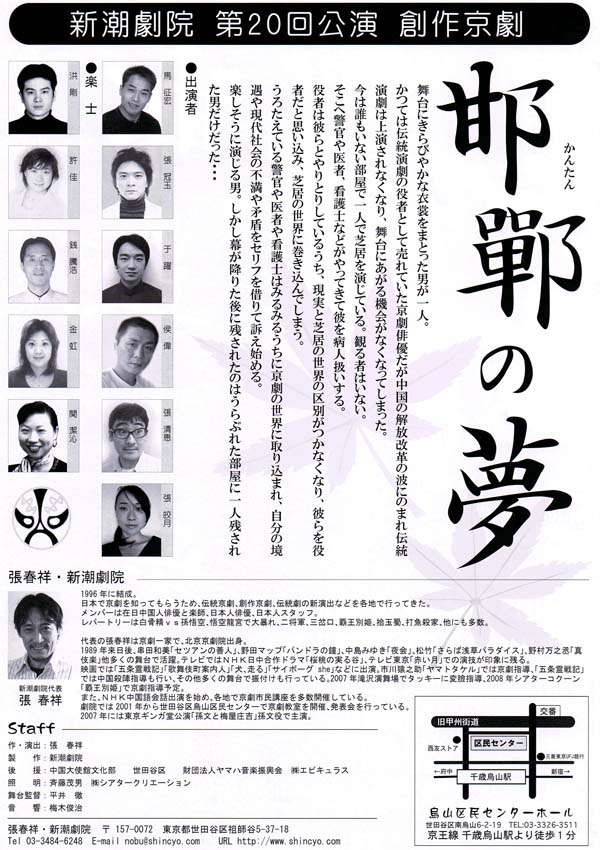 新潮劇院 第20回公演 創作京劇
邯鄲の夢
かんたん
舞台にきらびやかな衣裳をまとった男が一人。
かつては伝統演劇の役者として売れていた京劇俳優だが中国の解放改革の波にのまれ伝統
演劇は上演されなくなり、舞台にあがる機会がなくなってしまった。
今は誰もいない部屋で一人で芝居を演じている。観る者はいない。
そこへ警官や医者、看護士などがやってきて彼を病人扱いする。
役者は彼らとやりとりしているうち、現実と芝居の世界の区別がつかなくなり、彼らを役
者だと思い込み、芝居の世界に巻き込んでしまう。
うろたえている警官や医者や看護士はみるみるうちに京劇の世界に取り込まれ、自分の境
遇や現代社会の不満や矛盾をセリフを借りて訴え始める。
楽しそうに演じる男。しかし幕が降りた後に残されたのはうらぶれた部屋に一人残され
た男だけだった・・・
●出演者
馬 征宏
張 冠玉
于 躍
侯 偉
張 清恵
張 皎月
●楽士
洪 剛
許 佳
銭 騰浩
金 虹
関 潔沁
張春祥・新潮劇院
1996年に結成。
日本で京劇を知ってもらうため、伝統京劇、創作京劇、伝統劇の新演出などを各地で行ってきた。
メンバーは在日中国人俳優と楽師、日本人俳優、日本人スタッフ。
レパートリーは白骨精vs孫悟空、悟空龍宮で大暴れ、二将軍、三岔口、覇王別姫、拾玉鐲、打魚殺家、他にも多数。
代表の張春祥は京劇一家で、北京京劇院出身。
1989年来日後、串田和美「セツアンの善人」、野田マップ「パンドラの鐘」、中島みゆき「夜会」、松竹「さらば浅草パラダイス」、野村万之丞「真
伎楽」他多くの舞台で活躍。テレビではNHK日中合作ドラマ「桜桃の実る谷」、テレビ東京「赤い月」での演技が印象に残る。
映画では「五条霊戦記」「歌舞伎町案内人」「犬、走る」「サイボーグ she」などに出演。市川猿之助「ヤマトタケル」では京劇指導、「五条霊戦記」
では中国殺陣指導も行い、その他多くの舞台で振付けも行っている。2007年滝沢演舞場でタッキーに変臉指導、2008年シアターコクーン
「覇王別姫」で京劇指導予定。
また、NHK中国語会話出演を始め、各地で京劇市民講座を多数開催している。
劇院では2001年から世田谷区烏山区民センターで京劇教室を開催、発表会を行っている。
2007年には東京ギンガ堂公演「孫文と梅屋庄吉」孫文役で主演。
新潮劇院代表
張 春祥
Staff
作・演出：張 春祥
製 作：新潮劇院
後 援：中国大使館文化部 世田谷区 財団法人ヤマハ音楽振興会 ㈱エピキュラス
照 明：斉藤茂男 ㈱シアタークリエーション
舞台監督：平井 徹
音 響：梅木俊治
張春祥・新潮劇院 〒157-0072 東京都世田谷区祖師谷5-37-18
Tel 03-3484-6248 E-mail nobu@shincyo.com URL http://www.shincyo.com
交番
旧甲州街道
西友ストア
区民センター
三菱東京UFJ銀行
←府中
新宿→
千歳烏山駅
烏山区民センターホール
世田谷区南烏山6-2-19 TEL:03-3326-3511
京王線 千歳烏山駅より徒歩1分